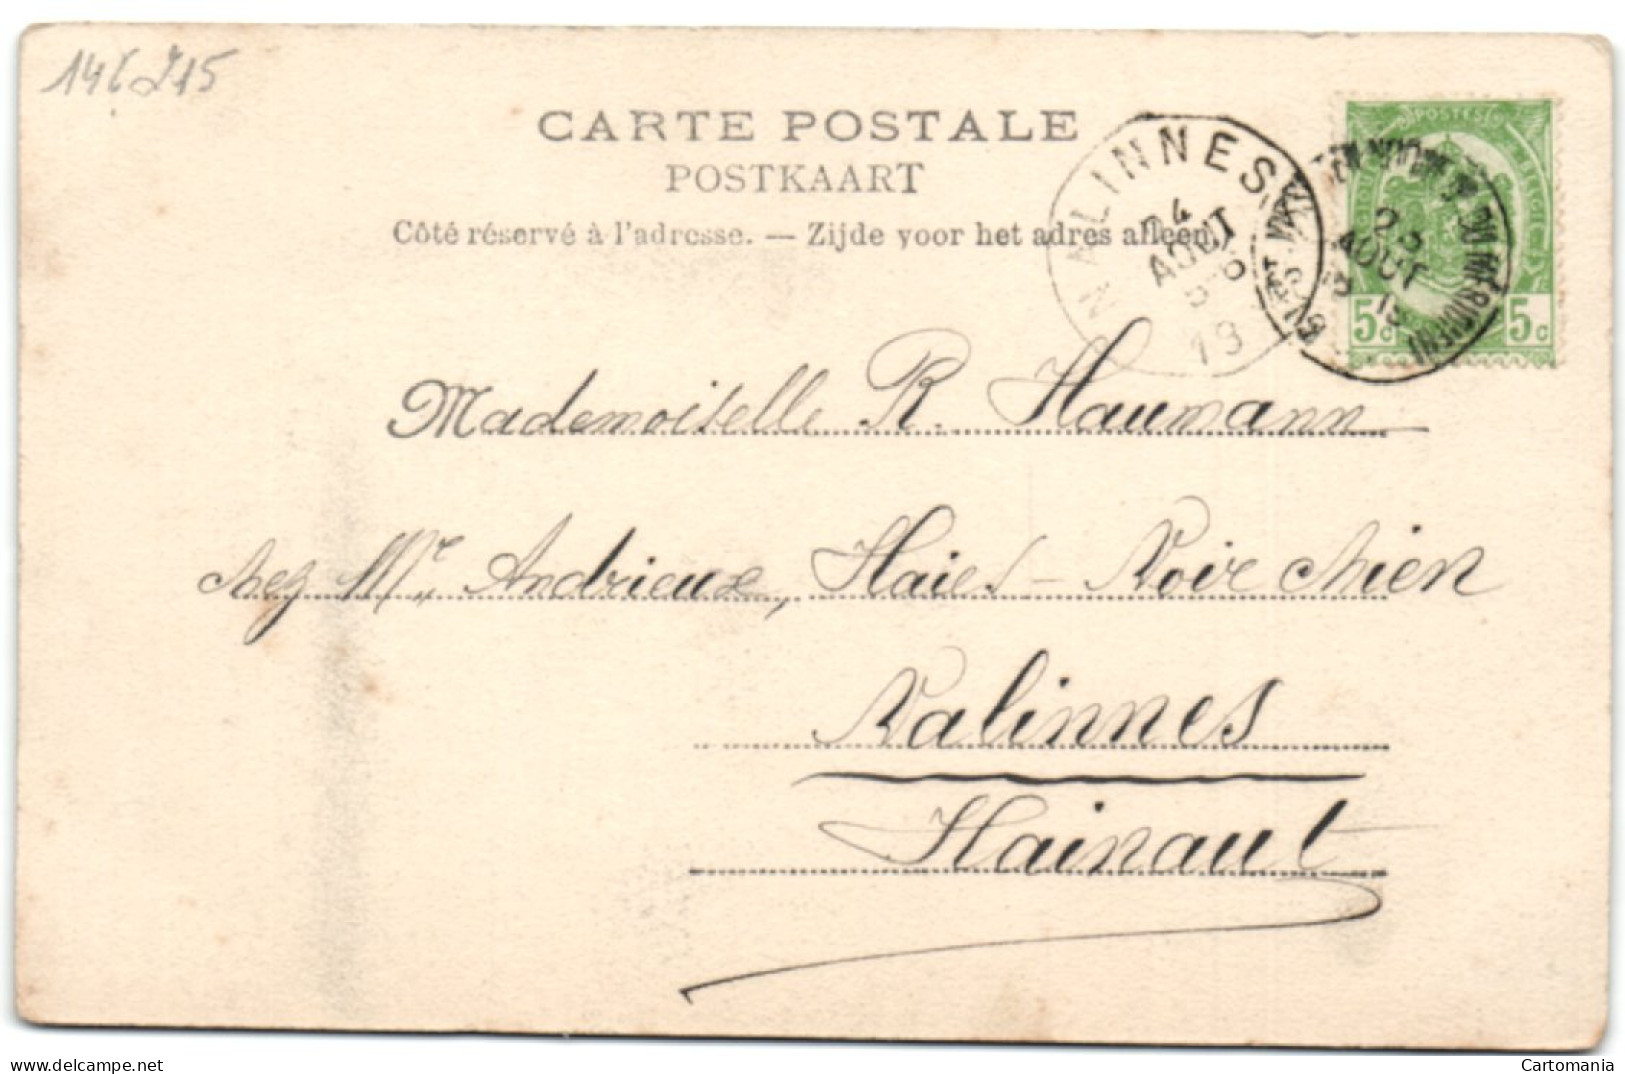 146 215
CARTE POSTALE
POSTKAART
Côté réservé à l'adresse. — Zijde voor het adres alleen.
NALINNES
4
AOUT
POSTES
23
AOUT
5c 5c
Mademoiselle R. Haumann
chez Mr. Andrieux, Haies - Noir chien
Nalinnes
Hainaut
delcampe.net
Cartomania